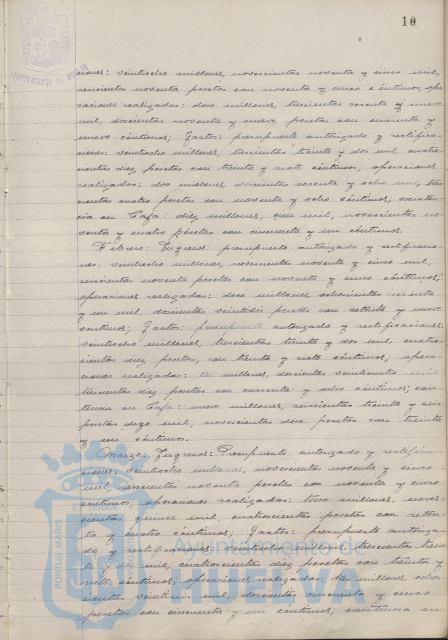 10
ciones: veintiocho millones, novecientas noventa y cinco mil,
seiscientas noventa pesetas con noventa y cinco céntimos, ope
raciones realizadas: doce millones, trescientas sesenta y nueve
mil, doscientas noventa y nueve pesetas con cuarenta y
nueve céntimos; Gastos: presupuesto autorizado y rectifica
ciones: veintiocho millones, trescientas treinta y dos mil, cuatro
cientas diez pesetas con treinta y siete céntimos, operaciones
realizadas: dos millones, doscientas sesenta y ocho mil, tres
cientas cuatro pesetas con noventa y ocho céntimos, existen
cia en Caja: diez millones, cien mil, novecientas no
venta y cuatro pesetas con cincuenta y un céntimos.
Febrero: Ingresos: presupuesto autorizado y rectificacio
nes: veintiocho millones, novecientas noventa y cinco mil,
seiscientas noventa pesetas con noventa y cinco céntimos;
operaciones realizadas: doce millones, ochocientas
y un mil, doscientas veintidós pesetas con setenta y nueve
céntimos; Gastos: presupuesto autorizado y rectificaciones:
veintiocho millones, trescientas treinta y dos mil, cuatro
cientas diez pesetas, con treinta y siete céntimos; opera
ciones realizadas: millones, doscientas veinticuatro mil
trescientas diez pesetas con cuarenta y ocho céntimos; exis
tencia en Caja: nueve millones, seiscientas treinta y seis
mil, novecientas doce pesetas con treinta
y un céntimos.
Marzo: Ingresos: Presupuesto autorizado y rectifica
ciones: veintiocho millones, novecientas noventa y cinco
mil, seiscientas noventa pesetas con noventa y cinco
céntimos, operaciones realizadas: trece millones, nove
cientas quince mil, cuatrocientas pesetas con seten
ta y cuatro céntimos; Gastos: presupuesto autoriza
do y rectificaciones: veintiocho millones trescientas trein
ta y dos mil, cuatrocientas diez pesetas con treinta y
siete céntimos; operaciones realizadas: millones, ocho
cientas veintiseis mil, doscientas cincuenta y cinco
pesetas con cincuenta y un céntimos; existencia en
Ayuntamiento de
PORTUS MARIS